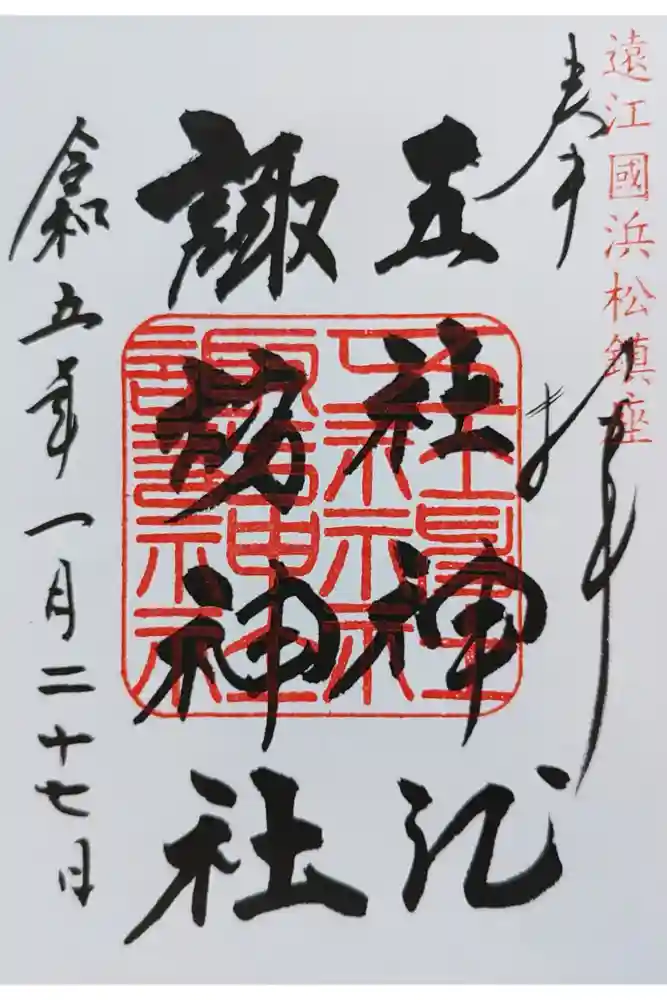 遠江國浜松鎮座
奉拝
五社神社
諏訪神社
令和五年一月二十七日